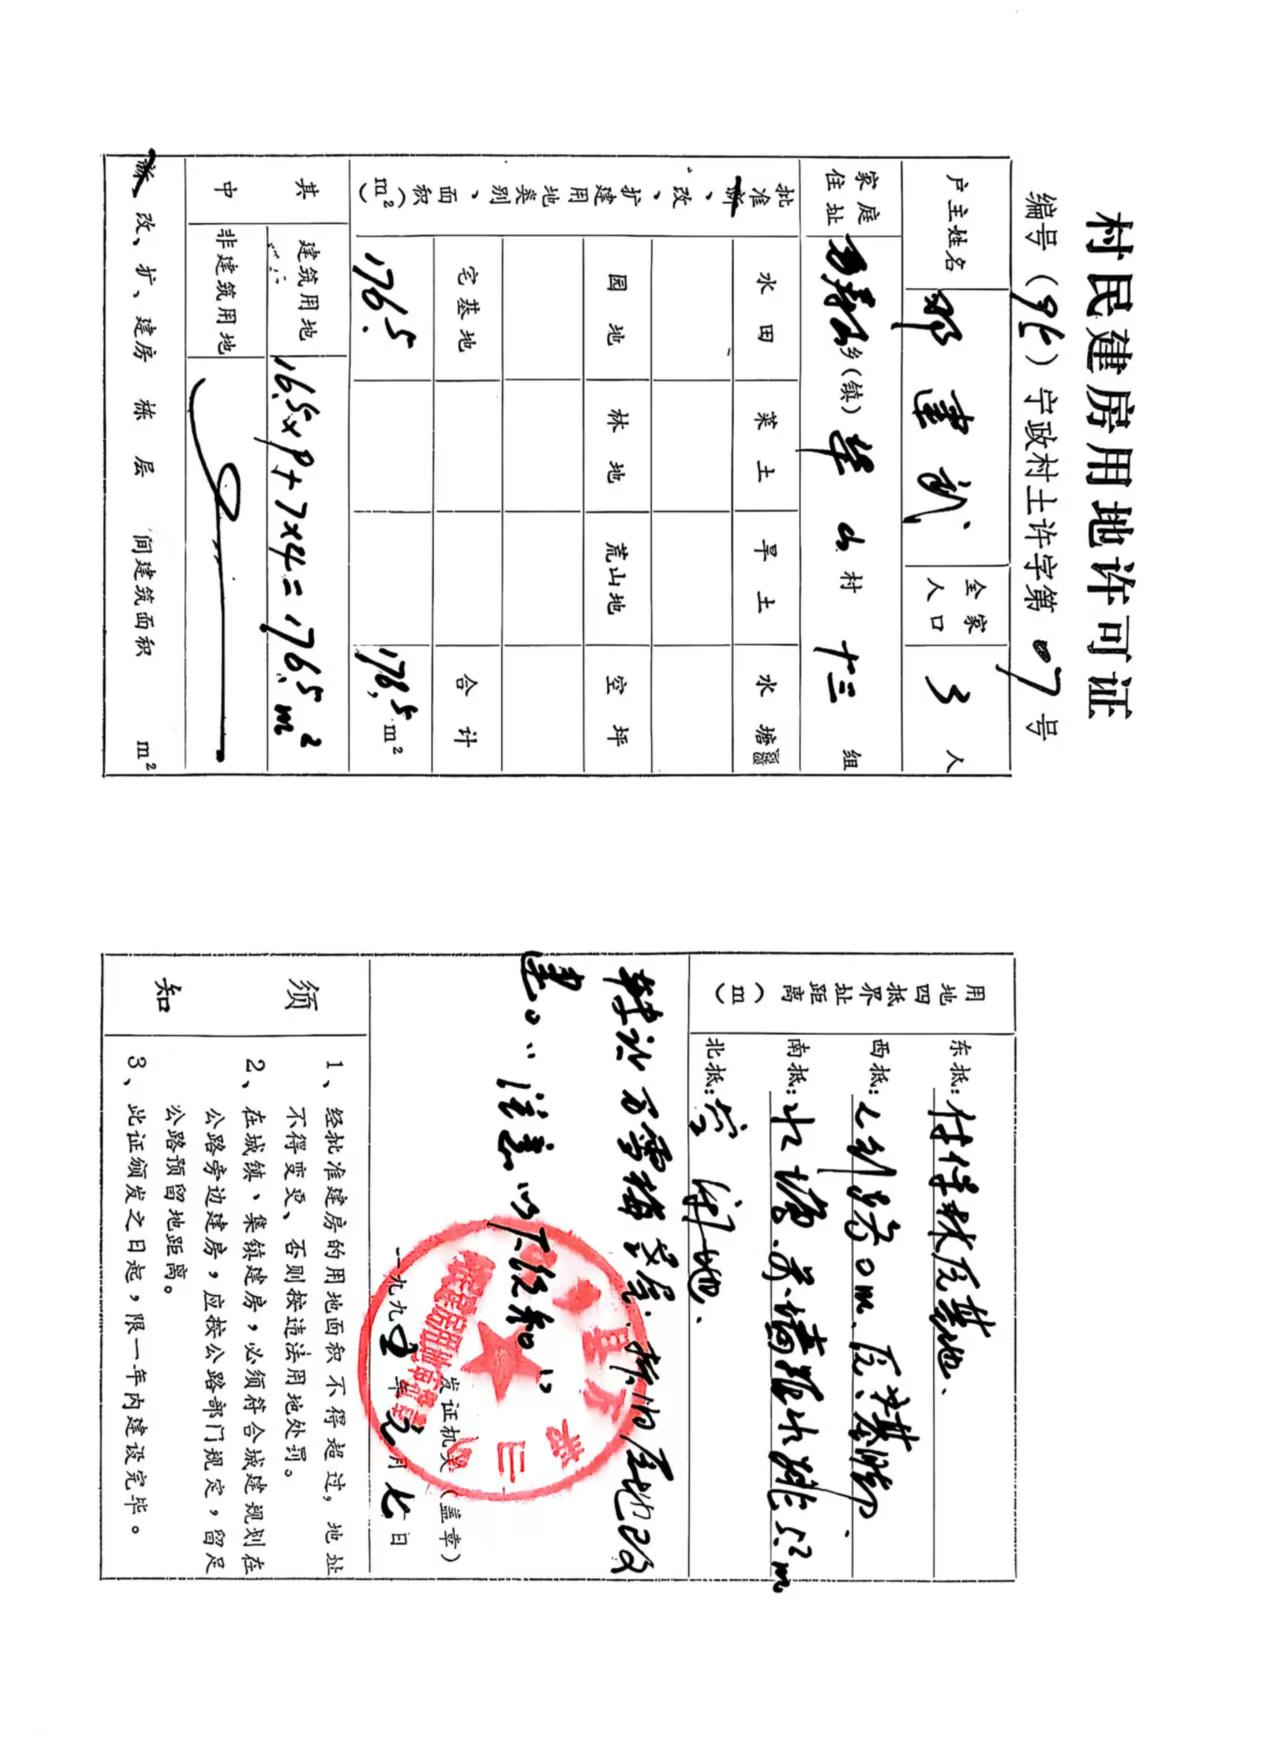 村民建房用地许可证
编号（95）宁政村土许字第07号
户主姓名 邓建武 全家人口 3 人
家庭住址 乡（镇） 华山村 十三 组
批准新、改、扩建用地类别、面积（m²）
水田 菜土 旱土 水塘
园地 林地 荒山地 空坪
宅基地 合计
176.5 176.5 m²
其中 建筑用地 16.5×9+7×4=176.5m²
非建筑用地
新、改、扩、建房 栋 层 间建筑面积 m²
用地四抵界址距离（m）
东抵： 基地.
西抵：
南抵：水塘. 水 5.2m
北抵：空闲地.
拆旧屋地改
建。"注意以下须知"
发证机关（盖章）
一九九五年元月七日
须知
1、经批准建房的用地面积不得超过，地址
不得变更、否则按违法用地处罚。
2、在城镇、集镇建房，必须符合城建规划在
公路旁边建房，应按公路部门规定，留足
公路预留地距离。
3、此证颁发之日起，限一年内建设完毕。